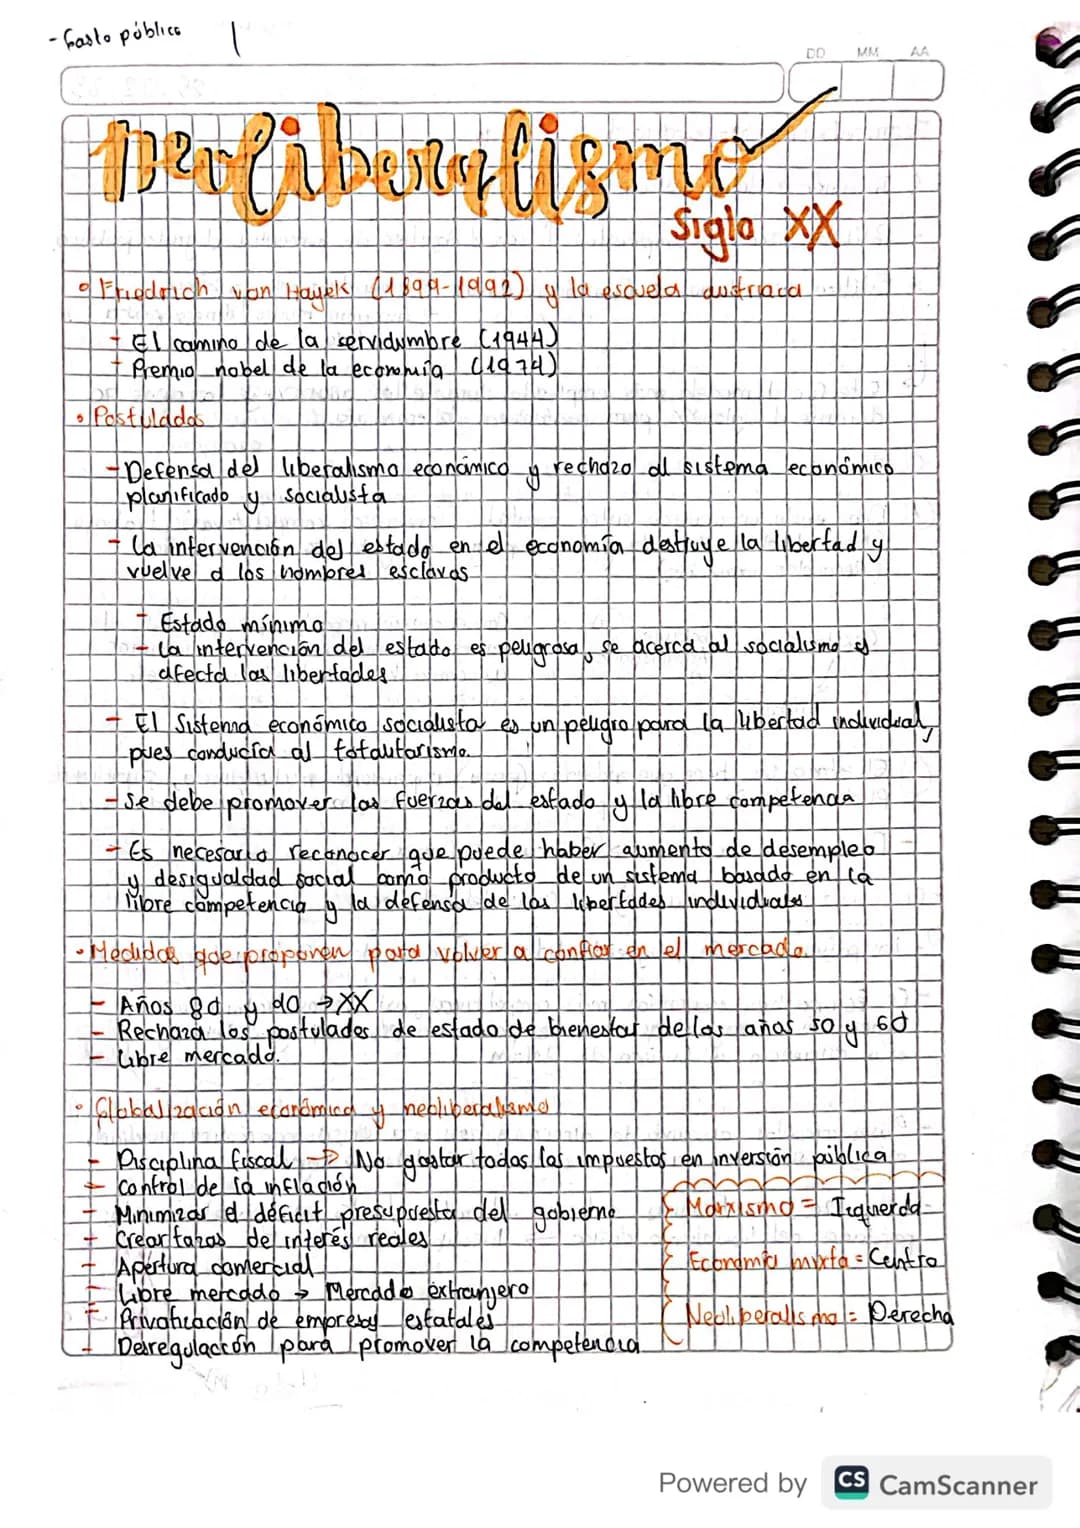 - Gasto público
DD MM AA
Neoliberalismo
Siglo XX
• Friedrich von Hayek (1899-1992) y la escuela austriaca
- El camino de la servidumbre (1944)
- Premio nobel de la economía (1974)
• Postulados
- Defensa del liberalismo económico y rechazo al sistema económico
planificado y socialista
- La intervención del estado en el economía destruye la libertad y
vuelve a los hombres esclavos
- Estado mínimo
- La intervención del estado es peligrosa, se acerca al socialismo y
afecta las libertades
- El Sistema económico socialista es un peligro para la libertad individual,
pues conducía al totautarismo.
- Se debe promover las fuerzas del estado y la libre competencia
- Es necesario reconocer que puede haber aumento de desempleo
y desigualdad social como producto de un sistema basado en la
libre competencia y la defensa de las libertades individuales
• Medidas que proponen para volver a confiar en el mercado.
- Años 80 y 90 → XX
- Rechaza los postulados de estado de bienestar de los años 50 y 60
- Libre mercado.
• Globalización económica y neoliberalismo
- Disciplina fiscal → No gastar todos los impuestos en inversión pública
- Control de la inflación
- Minimizar el déficit presupuesta del gobierno
- Crear tazas de interés reales
- Apertura comercial
- Libre mercado → Mercado extranjero
- Privatización de empresas estatales
- Desregulación para promover la competencia
Marxismo = Izquierda
Economía mixta = Centro
Neoliberalismo = Derecha
Powered by CS CamScanner